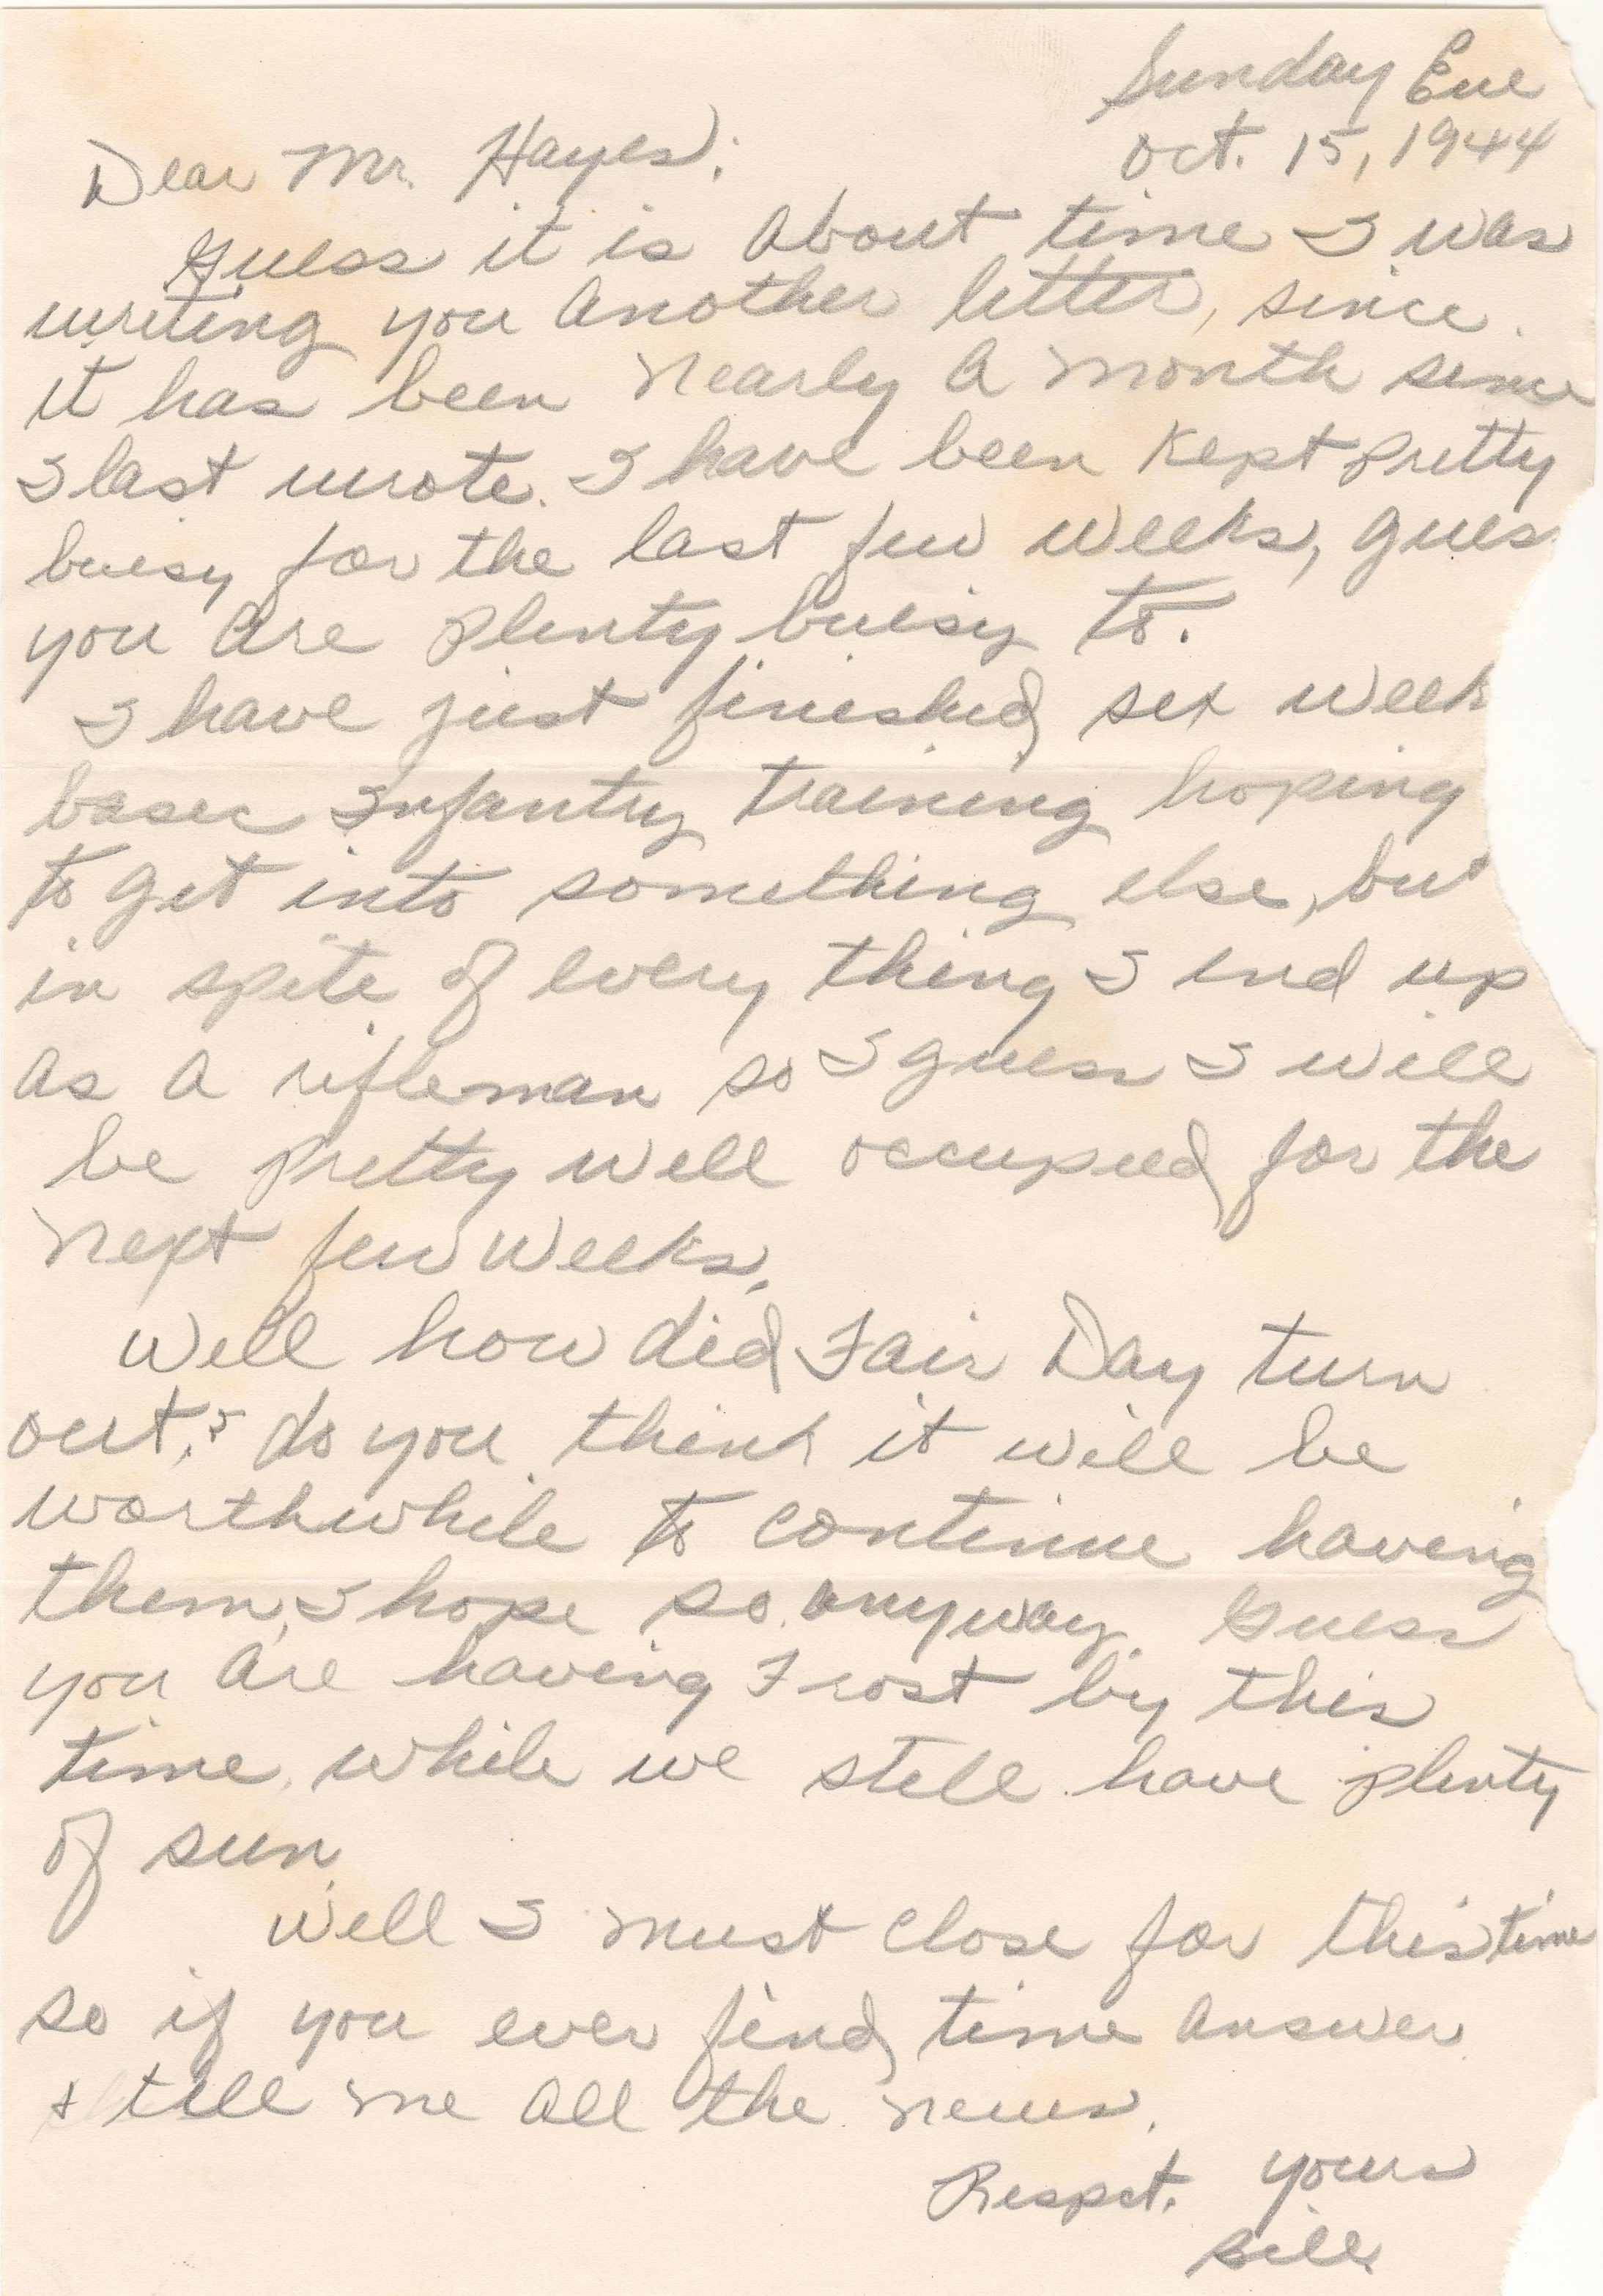 Sunday Eve
Oct. 15, 1944
Dear Mr. Hayes:
Guess it is about time I was
writing you another letter, since
it has been nearly a month since
I last wrote. I have been kept pretty
buisy for the last few weeks, gues
you are plenty buisy to.
I have just finished six week
basic Infantry training hoping
to get into something else, but
in spite of every thing I end up
as a rifleman so I guess I will
be pretty well occupied for the
next few weeks.
Well how did Fair Day turn
out? do you think it will be
worthwhile to continue having
them, I hope so anyway. Guess
you are having Frost by this
time, while we still have plenty
of sun.
Well I must close for this time
so if you ever find time answer
& tell me all the news.
Respct. yours
Bill